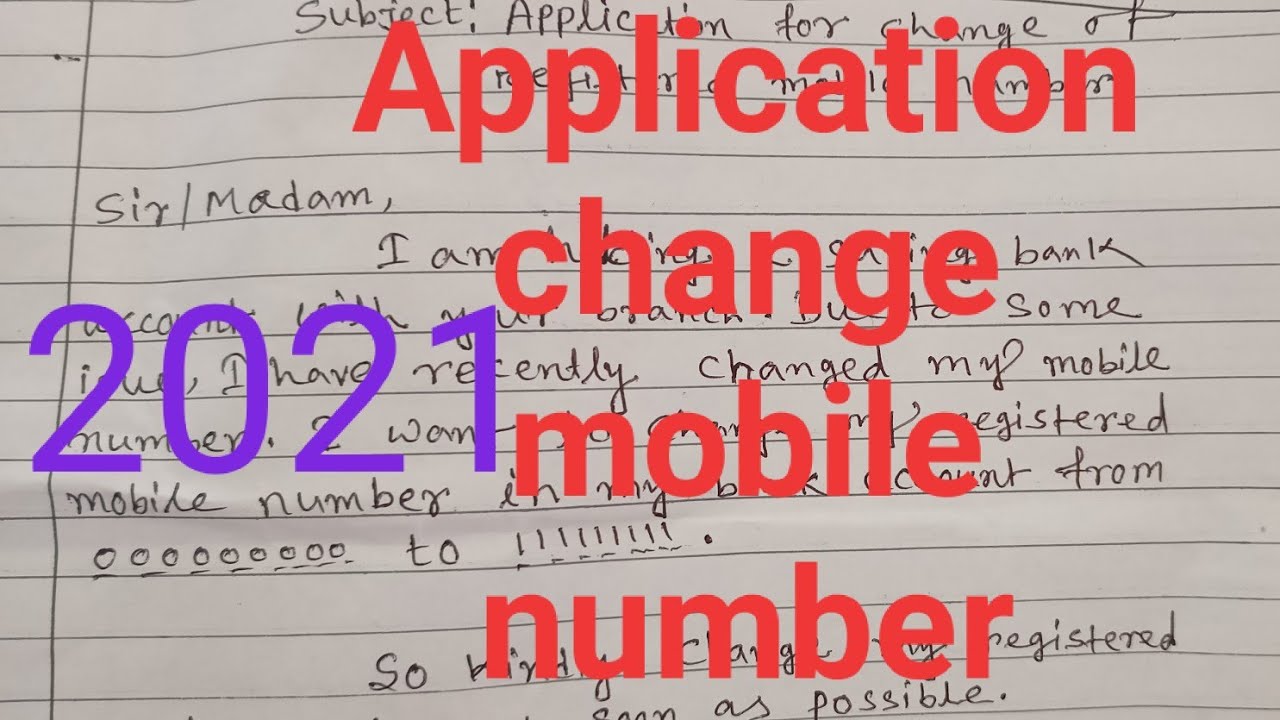 Subject: Application for change of
mobile number
Sir/Madam,
I am saving bank
account with your branch. Due to some
issue, I have recently changed my mobile
number. I want to change my registered
mobile number in my bank account from
000000000 to 111111111.
So kindly change my registered
soon as possible.
Application
change
mobile
number
2021